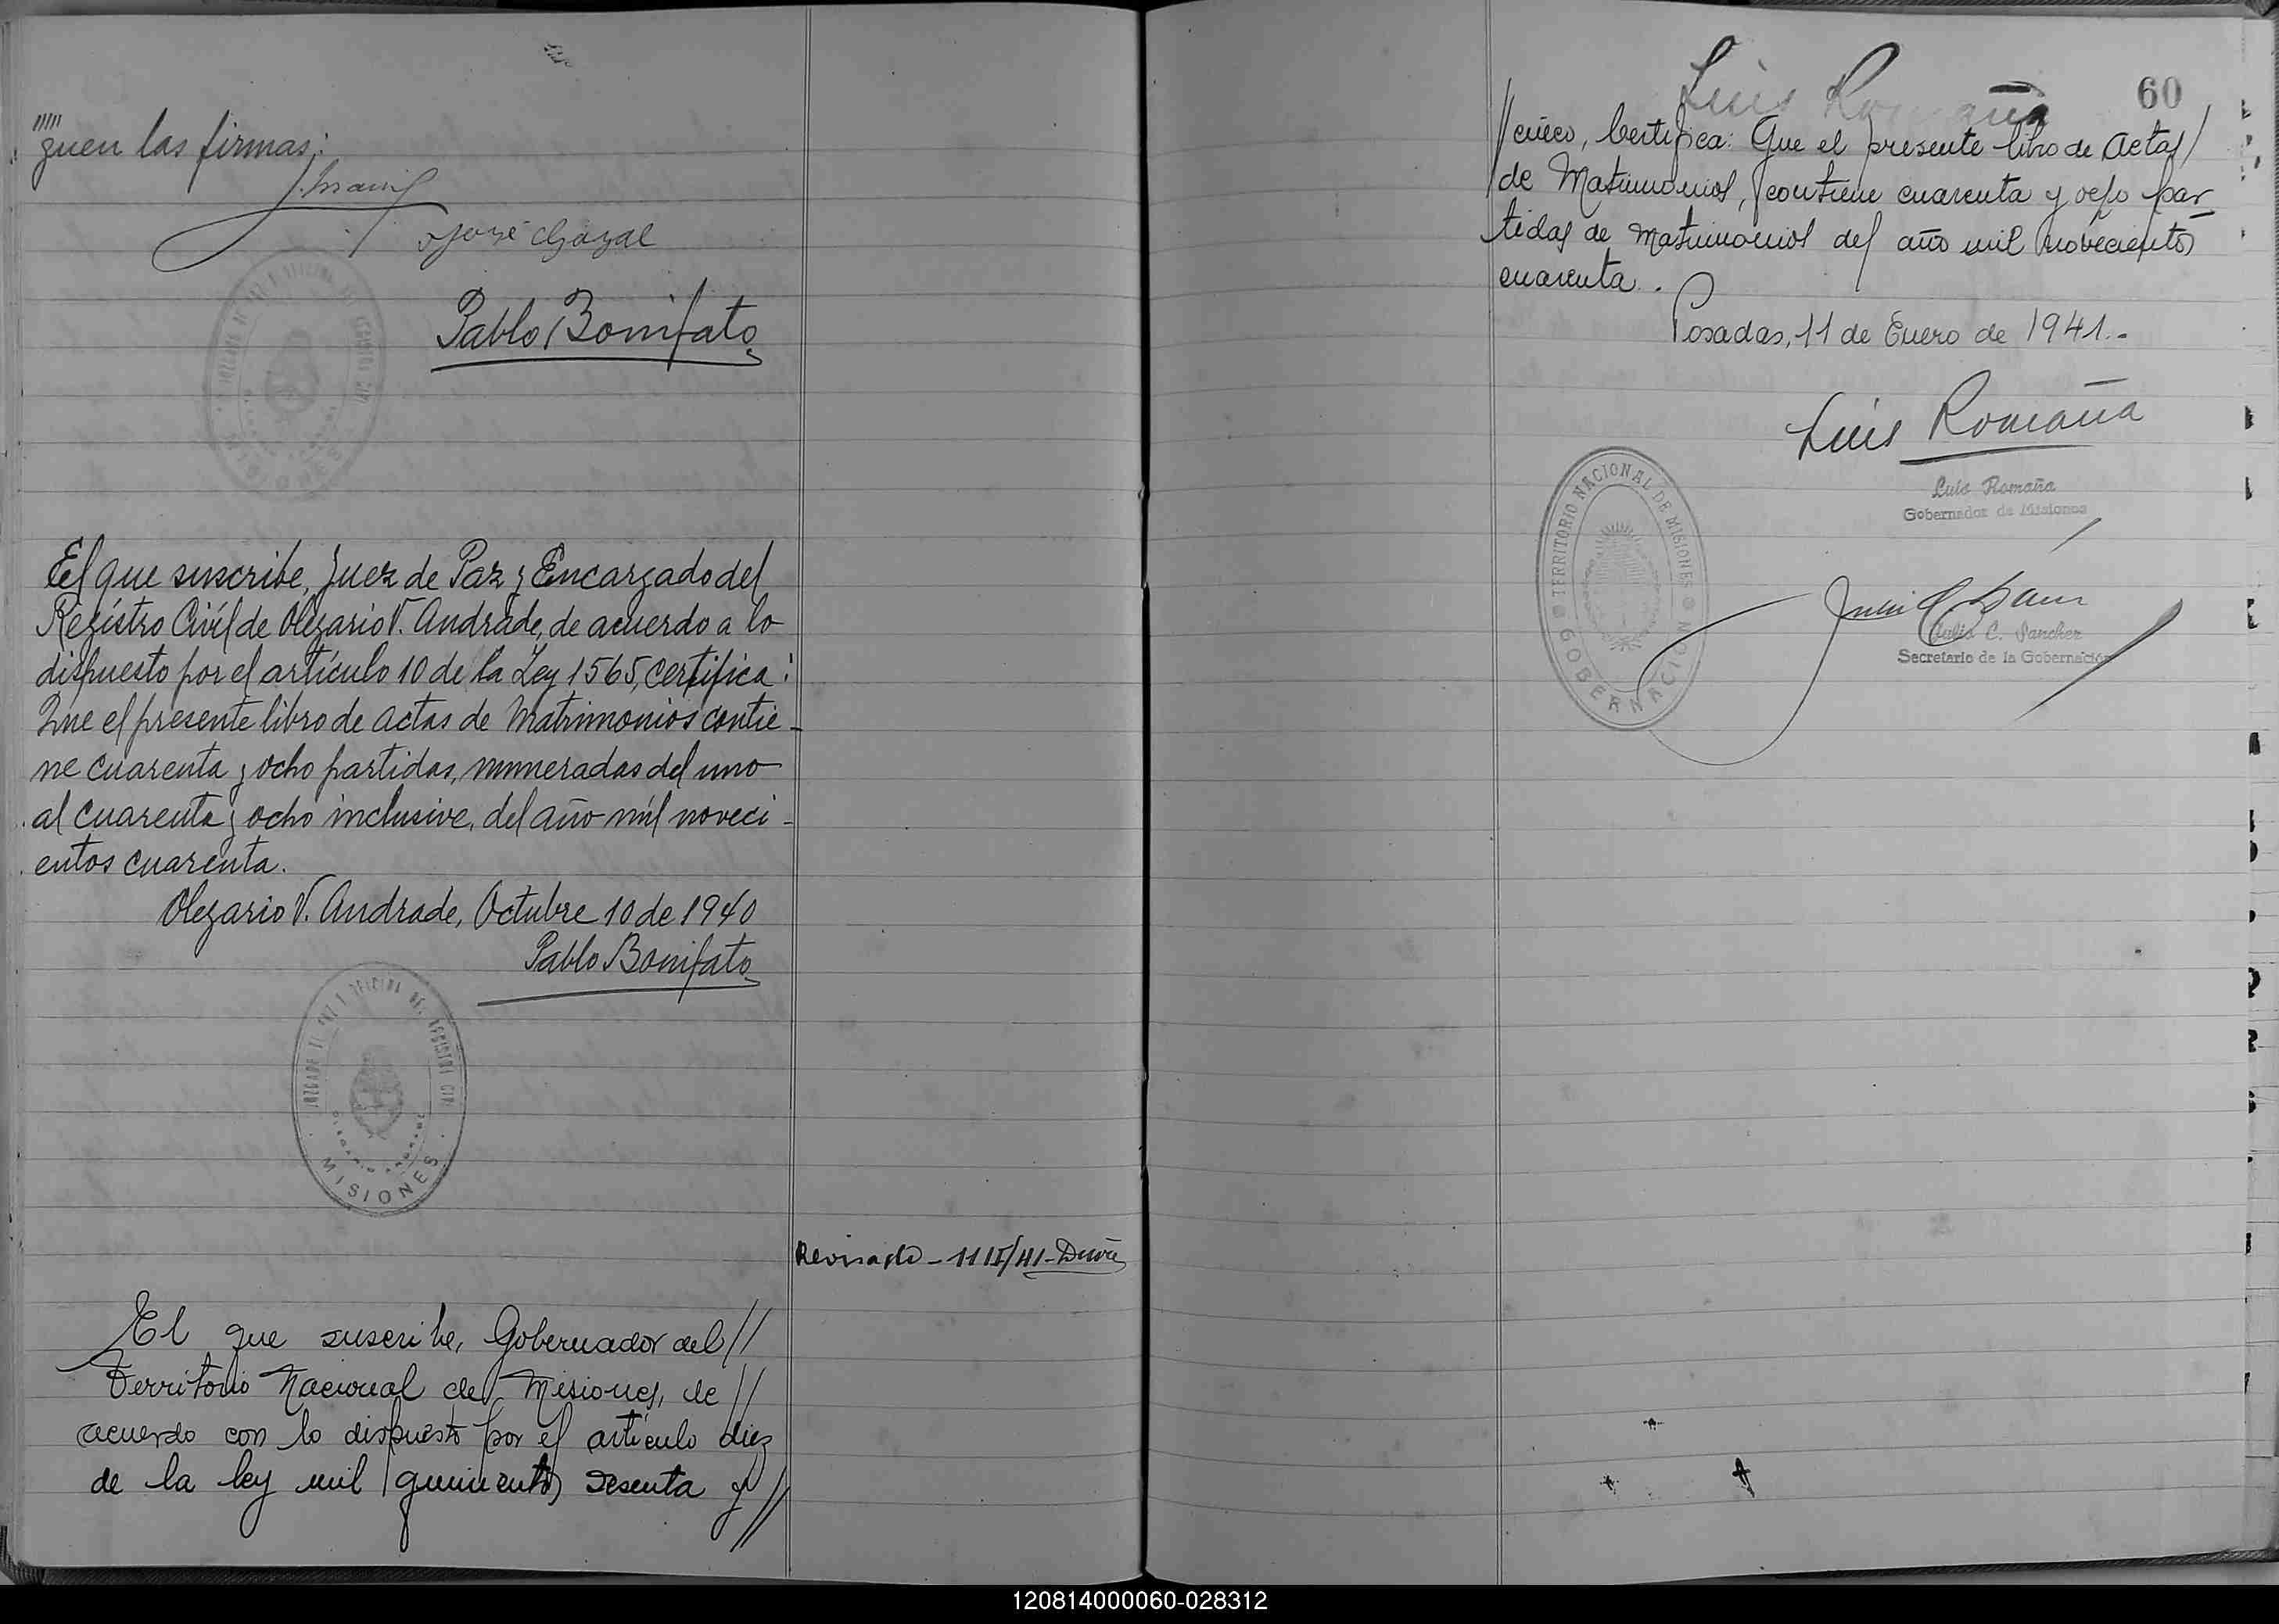 guen las firmas:
José Chazal
Pablo Bonifato
El que suscribe, Juez de Paz y Encargado del
Registro Civil de Olegario V. Andrade, de acuerdo a lo
dispuesto por el artículo 10 de la Ley 1565, certifica:
Que el presente libro de actas de Matrimonios contie-
ne cuarenta y ocho partidas, numeradas del uno
al cuarenta y ocho inclusive, del año mil noveci-
entos cuarenta.
Olegario V. Andrade, Octubre 10 de 1940
Pablo Bonifato
MISIONES
Revisado - 11 II/41 -
El que suscribe, Gobernador del //
Territorio Nacional de Misiones, de //
acuerdo con lo dispuesto por el artículo diez
de la ley mil quinientos sesenta y //
Luis Romaña
60
// cinco, Certifica: Que el presente libro de Actas /
de Matrimonios, contiene cuarenta y ocho par-
tidas de matrimonios del año mil novecientos
cuarenta.
Posadas, 11 de Enero de 1941.-
Luis Romaña
Luis Romaña
Gobernador de Misiones
TERRITORIO NACIONAL DE MISIONES
GOBERNACION
Julio C. Sanchez
Secretario de la Gobernación
120814000060-028312